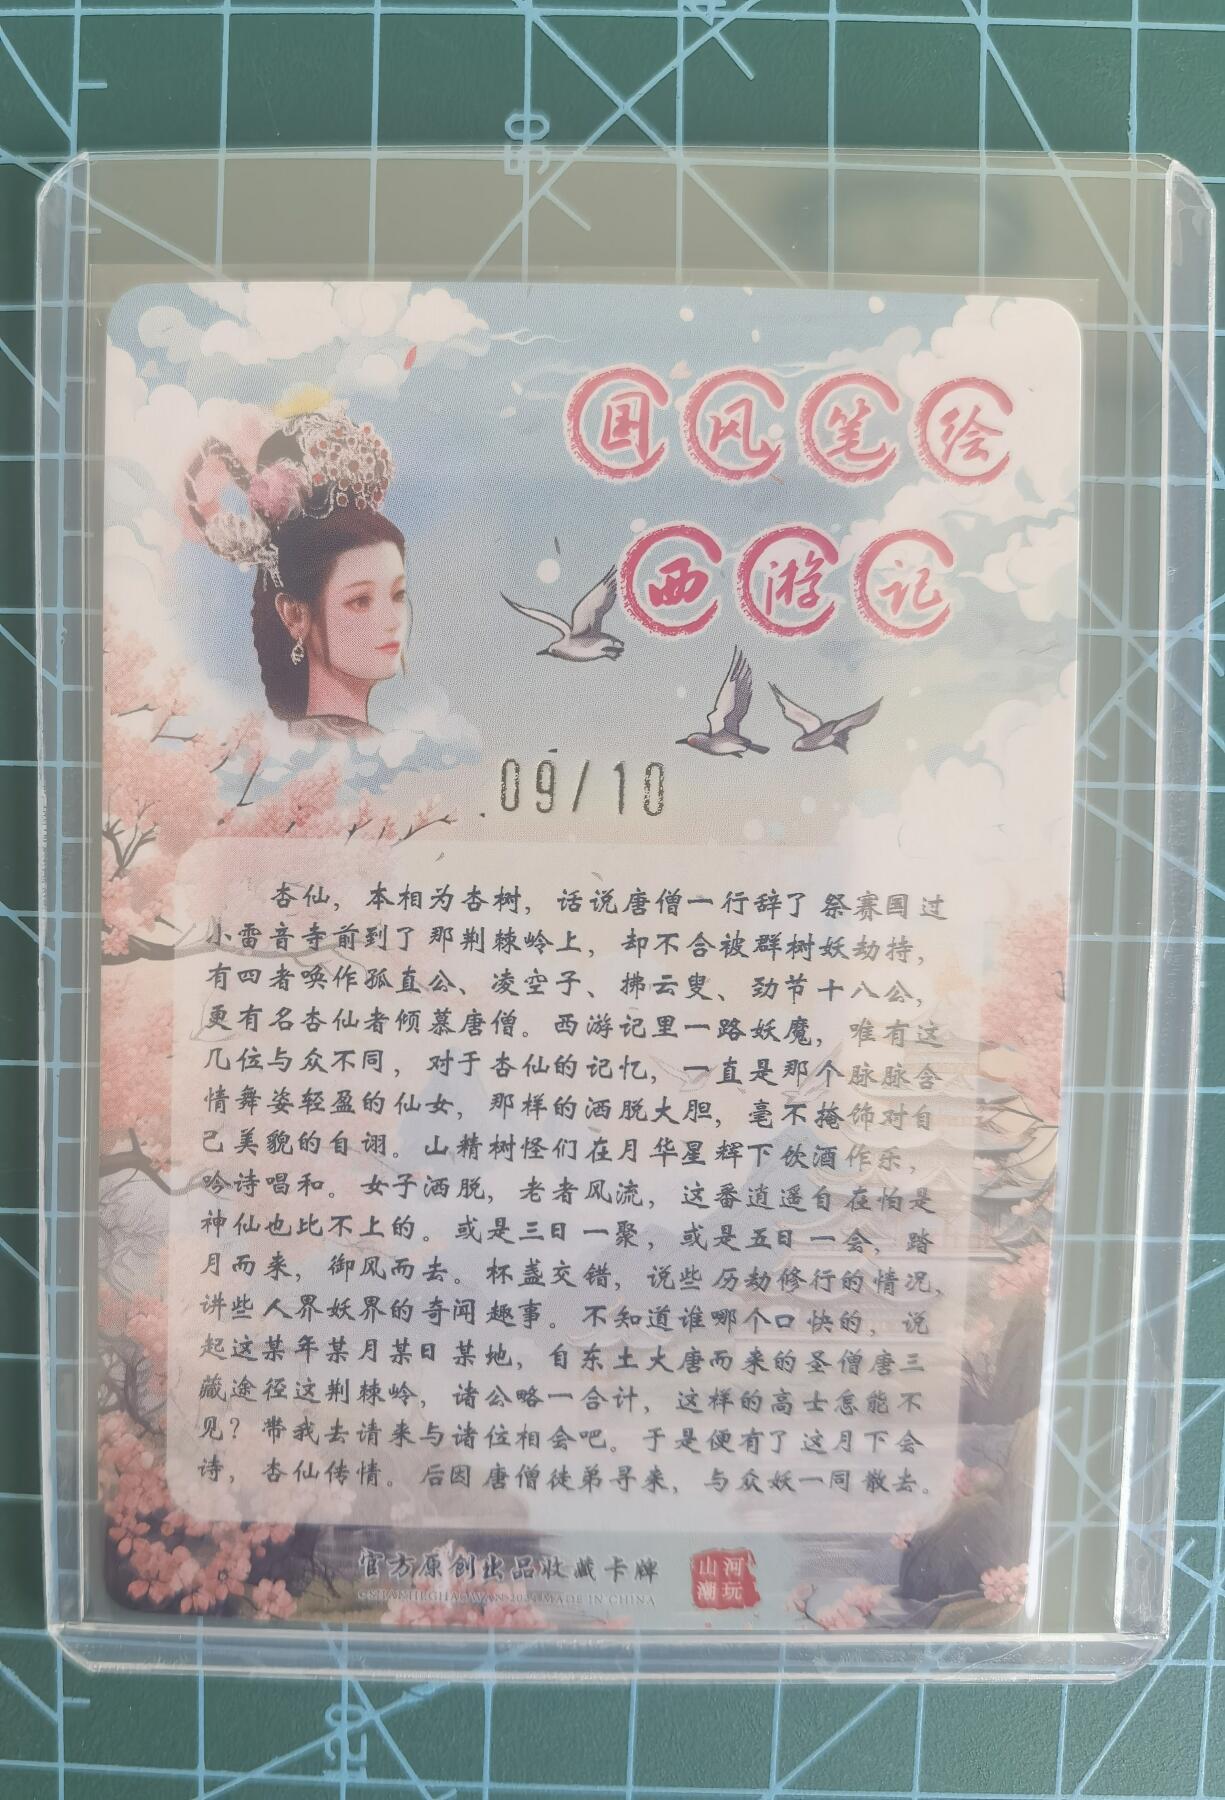 国风笔绘
西游记
09/10
杏仙，本相为杏树，话说唐僧一行辞了祭赛国过
小雷音寺前到了那荆棘岭上，却不合被群树妖劫持，
有四者唤作孤直公、凌空子、拂云叟、劲节十八公，
更有名杏仙者倾慕唐僧。西游记里一路妖魔，唯有这
几位与众不同，对于杏仙的记忆，一直是那个脉脉含
情舞姿轻盈的仙女，那样的洒脱大胆，毫不掩饰对自
己美貌的自诩。山精树怪们在月华星辉下饮酒作乐，
吟诗唱和。女子洒脱，老者风流，这番逍遥自在怕是
神仙也比不上的。或是三日一聚，或是五日一会，踏
月而来，御风而去。杯盏交错，说些历劫修行的情况，
讲些人界妖界的奇闻趣事。不知道谁哪个口快的，说
起这某年某月某日某地，自东土大唐而来的圣僧唐三
藏途径这荆棘岭，诸公略一合计，这样的高士怎能不
见？带我去请来与诸位相会吧。于是便有了这月下会
诗，杏仙传情。后因唐僧徒弟寻来，与众妖一同散去。
官方原创出品收藏卡牌
MADE IN CHINA
山河
潮玩
80
120